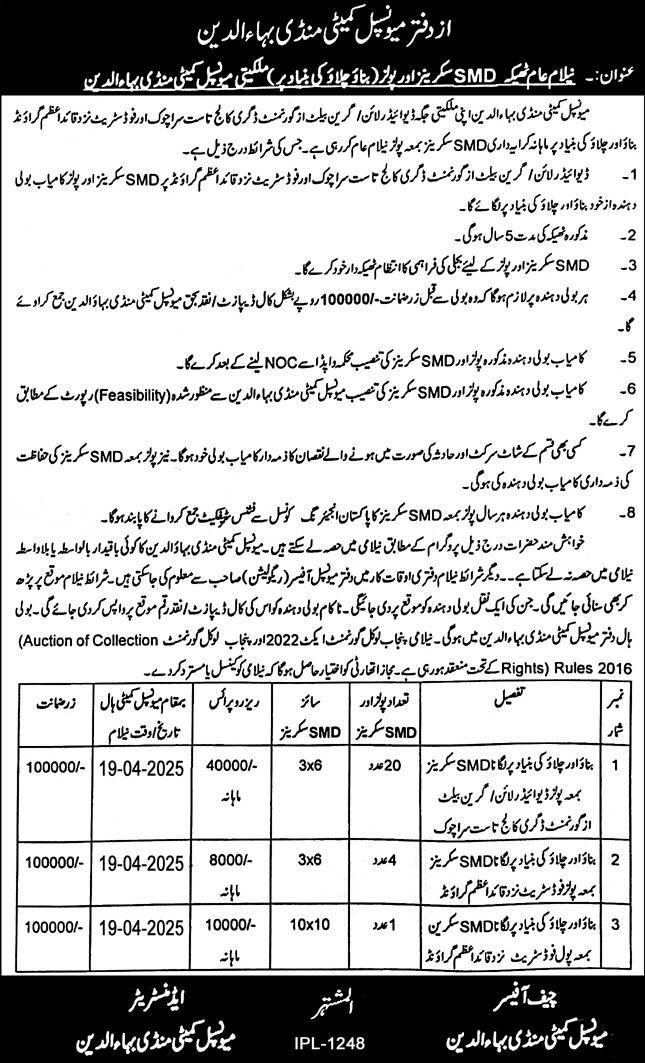 از دفتر میونسپل کمیٹی منڈی بہاء الدین
عنوان:۔ نیلام عام ٹھیکہ SMD سکرینز اور پولز (بناؤ چلاؤ کی بنیاد پر) ملکیتی میونسپل کمیٹی منڈی بہاء الدین
میونسپل کمیٹی منڈی بہاء الدین اپنی ملکیتی جگہ ڈیوائیڈر لائن/ گرین بیلٹ از گورنمنٹ ڈگری کالج تا ست سرا چوک اور فوڈ سٹریٹ نزد قائد اعظم گراؤنڈ
بناؤ اور چلاؤ کی بنیاد پر ماہانہ کرایہ داری SMD سکرینز بمعہ پولز نیلام عام کر رہی ہے۔ جس کی شرائط درج ذیل ہے۔
1- ڈیوائیڈر لائن/ گرین بیلٹ از گورنمنٹ ڈگری کالج تا ست سرا چوک اور فوڈ سٹریٹ نزد قائد اعظم گراؤنڈ پر SMD سکرینز اور پولز کامیاب بولی
دہندہ از خود بناؤ اور چلاؤ کی بنیاد پر لگائے گا۔
2- مذکورہ ٹھیکہ کی مدت 5 سال ہوگی۔
3- SMD سکرینز اور پولز کے لیئے بجلی کی فراہمی کا انتظام ٹھیکہ دار خود کرے گا۔
4- ہر بولی دہندہ پر لازم ہوگا کہ وہ بولی سے قبل زر ضمانت -/100000 روپے بشکل کال ڈیپازٹ/ نقد بحق میونسپل کمیٹی منڈی بہاؤالدین جمع کروائے
گا۔
5- کامیاب بولی دہندہ مذکورہ پولز اور SMD سکرینز کی تنصیب محکمہ واپڈا سے NOC لینے کے بعد کرے گا۔
6- کامیاب بولی دہندہ مذکورہ پولز اور SMD سکرینز کی تنصیب میونسپل کمیٹی منڈی بہاء الدین سے منظور شدہ (Feasibility) رپورٹ کے مطابق
کرے گا۔
7- کسی بھی قسم کے شاٹ سرکٹ اور حادثہ کی صورت میں ہونے والے نقصان کا ذمہ دار کامیاب بولی خود ہوگا۔ نیز پولز بمعہ SMD سکرینز کی حفاظت
کی ذمہ داری کامیاب بولی دہندہ کی ہوگی۔
8- کامیاب بولی دہندہ ہر سال پولز بمعہ SMD سکرینز کا پاکستان انجینئرنگ کونسل سے فٹنس سرٹیفکیٹ جمع کروانے کا پابند ہوگا۔
خواہش مند حضرات درج ذیل پروگرام کے مطابق نیلامی میں حصہ لے سکتے ہیں۔ میونسپل کمیٹی منڈی بہاؤالدین کا کوئی باقیدار بالواسطہ یا بلاواسطہ
نیلامی میں حصہ نہ لے سکتا ہے۔۔ دیگر شرائط نیلام دفتری اوقات کار میں دفتر میونسپل آفیسر (ریگولیشن) صاحب سے معلوم کی جاسکتی ہیں۔ شرائط نیلام موقع پر پڑھ
کر بھی سنائی جائیں گی۔ جن کی ایک نقل بولی دہندہ کو موقع پر دی جائیگی۔ ناکام بولی دہندہ کو اس کی کال ڈیپازٹ/ نقد رقم موقع پر واپس کر دی جائے گی۔ بولی
ہال دفتر میونسپل کمیٹی منڈی بہاء الدین میں ہوگی۔ نیلامی پنجاب لوکل گورنمنٹ ایکٹ 2022 اور پنجاب لوکل گورنمنٹ (Auction of Collection
Rights) Rules 2016 کے تحت منعقد ہو رہی ہے۔ مجاز اتھارٹی کو اختیار حاصل ہوگا کہ نیلامی کو کینسل یا مسترد کر دے۔
نمبر شمار تفصیل تعداد پولز اور SMD سکرینز سائز SMD سکرینز ریزرو پرائس بمقام میونسپل کمیٹی ہال تاریخ/ وقت نیلام زر ضمانت
1 بناؤ اور چلاؤ کی بنیاد پر لگانا SMD سکرینز 20 عدد 3x6 40000/- 19-04-2025 100000/-
بمعہ پولز ڈیوائیڈر لائن/ گرین بیلٹ ماہانہ
از گورنمنٹ ڈگری کالج تا ست سرا چوک
2 بناؤ اور چلاؤ کی بنیاد پر لگانا SMD سکرینز 4 عدد 3x6 8000/- 19-04-2025 100000/-
بمعہ پولز فوڈ سٹریٹ نزد قائد اعظم گراؤنڈ ماہانہ
3 بناؤ اور چلاؤ کی بنیاد پر لگانا SMD سکرین 1 عدد 10x10 10000/- 19-04-2025 100000/-
بمعہ پول فوڈ سٹریٹ نزد قائد اعظم گراؤنڈ ماہانہ
چیف آفیسر المشتہر ایڈمنسٹریٹر
میونسپل کمیٹی منڈی بہاء الدین IPL-1248 میونسپل کمیٹی منڈی بہاء الدین